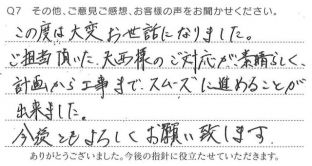 Q7 その他、ご意見ご感想、お客様の声をお聞かせください。
この度は大変お世話になりました。
ご担当頂いた大西様のご対応が素晴らしく、
計画から工事までスムーズに進めることが
出来ました。
今後ともよろしくお願い致します
ありがとうございました。今後の指針に役立たせていただきます。